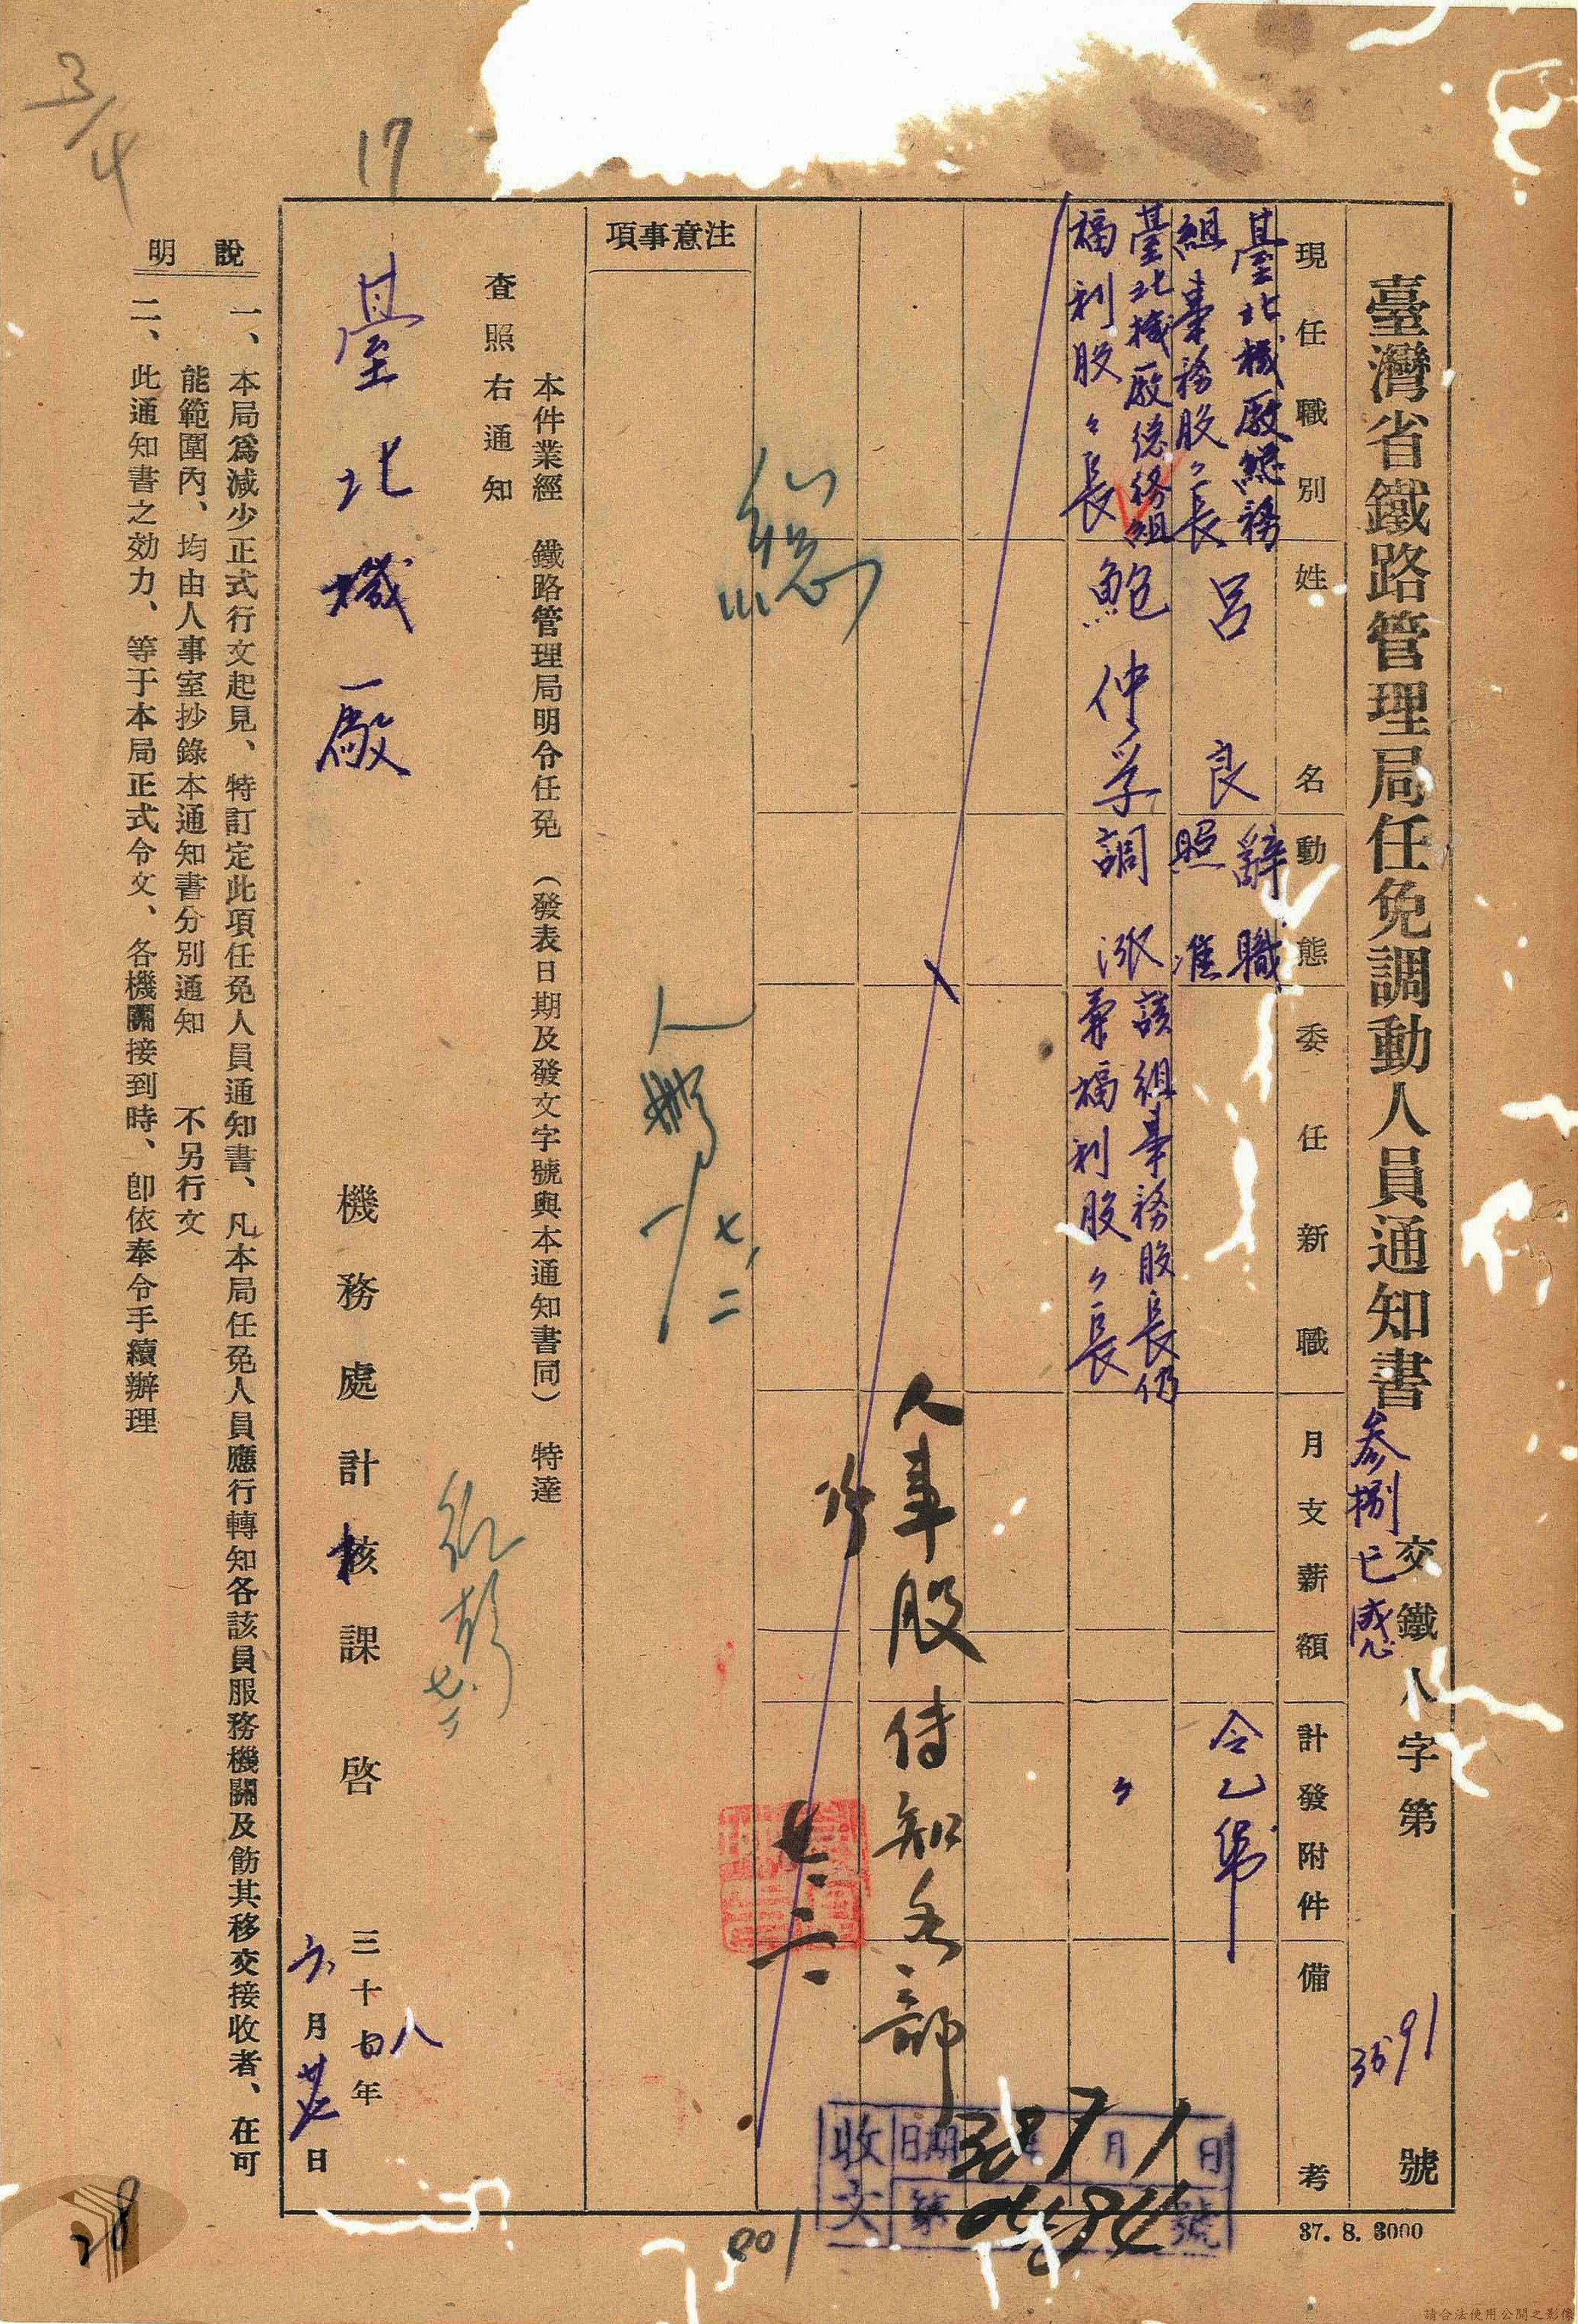 臺灣省鐵路管理局任免調動人員通知書
交鐵人字第3591號
參捌已感
現任職別
姓名
動態
委任新職
月支薪額
計發附件
備考
臺北機廠總務
組事務股々長
呂良
辭職
照准
令乙件
臺北機廠總務組
福利股々長
鮑仲孚
調派
該組事務股長仍
兼福利股々長
々
人事股侍知各部
七、二
總
注意事項
人
七、二
本件業經 鐵路管理局明令任免 (發表日期及發文字號與本通知書同) 特達
查照右通知
臺北機廠
機務處計核課 啓
三十八年
六月廿八日
說明
一、本局爲減少正式行文起見、特訂定此項任免人員通知書、凡本局任免人員應行轉知各該員服務機關及飭其移交接收者、在可
能範圍內、均由人事室抄錄本通知書分別通知 不另行文
二、此通知書之効力、等于本局正式令文、各機關接到時、卽依奉令手續辦理
收文
日期 38年7月1日
第 號
37. 8. 3000
3/4
17
001
28
請合法使用公開之影像